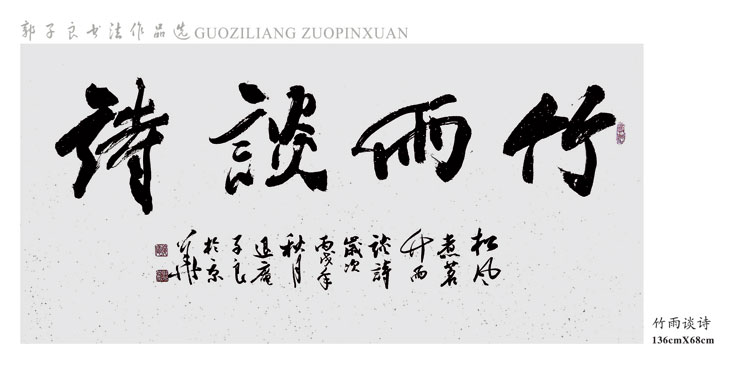 郭子良书法作品选GUOZILIANG ZUOPINXUAN
竹雨談詩
松风
煮茗
竹雨
談詩
歲次
丙戌年
秋月
退庵
子良
於京
華
竹雨谈诗
136cmX68cm